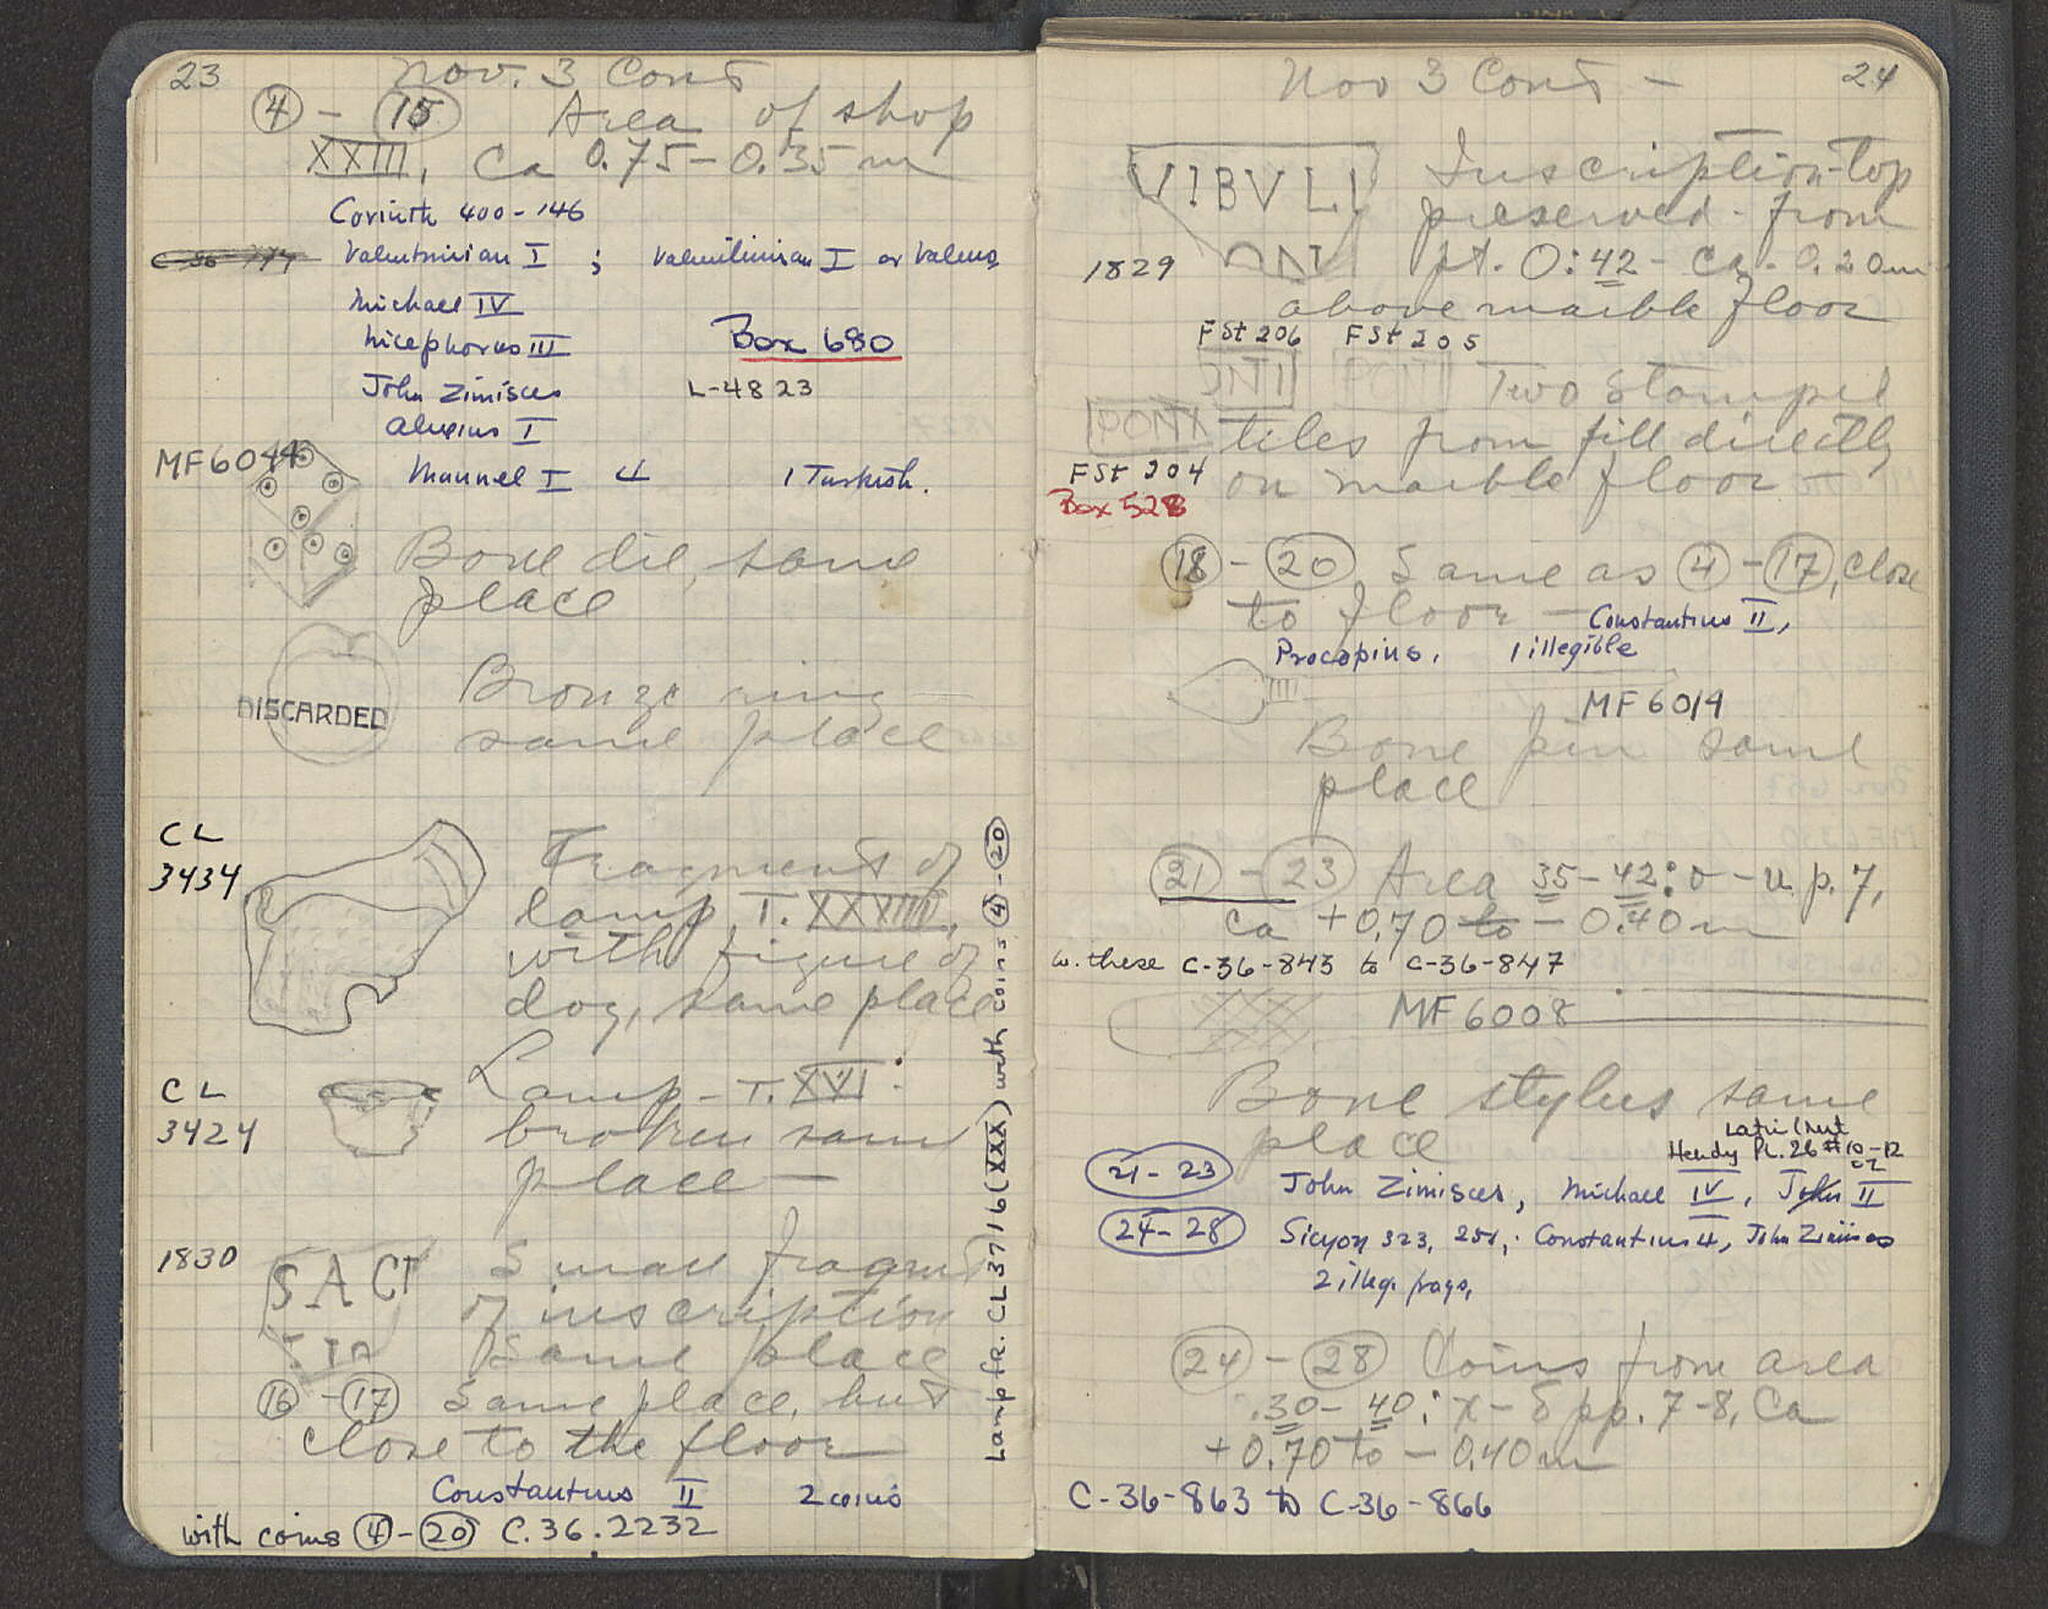 23 Nov. 3 Cont
④ - ⑮ Area of shop
XXIII, Ca 0.75 - 0.35 m
Corinth 400 - 146
Valentinian I ; Valentinian I or Valens
Michael IV
Nicephorus III Box 680
John Zimisces L-4823
Alexius I
MF6044 Manuel I 4 1 Turkish.
Bone die, same
place
DISCARDED Bronze ring
same place
CL
3434
Fragments of
lamp T. XXVIII,
with figure of
dog, same place
CL
3424
Lamp - T. XVI
broken same
place —
1830 SACT Small fragment
of inscription
Same place
⑯ - ⑰ Same place, but
close to the floor
Constantius II 2 coins
with coins ④ - ⑳ C.36.2232
Lamp fr. CL 3716 (XXX) with coins ④ - ⑳
Nov 3 Cont - 24
VIBVLI Inscription - top
preserved - from
1829 ONI pt. O:42 - Ca. 0.20m
above marble floor
FSt 206 FSt 205
ONTI PONTI Two Stamped
PONT tiles from fill directly
FSt 204 on marble floor —
Box 528
⑱ - ⑳ Same as ④ - ⑰, close
to floor — Constantius II,
Procopius, 1 illegible
MF 6014
Bone pin same
place
㉑ - ㉓ Area 35 - 42: o - u p. 7,
Ca +0.70 to - 0.40 m
w. these C-36-843 to C-36-847
MF 6008
Bone stylus same
place
Hendy Pl. 26 #10-12
21 - 23 John Zimisces, Michael IV, John II
24 - 28 Sicyon 323, 251, Constantius 4, John Zimisces
2 illeg. frags,
㉔ - ㉘ Coins from area
30 - 40: x - δ pp. 7-8, Ca
+ 0.70 to - 0.40 m
C-36-863 to C-36-866